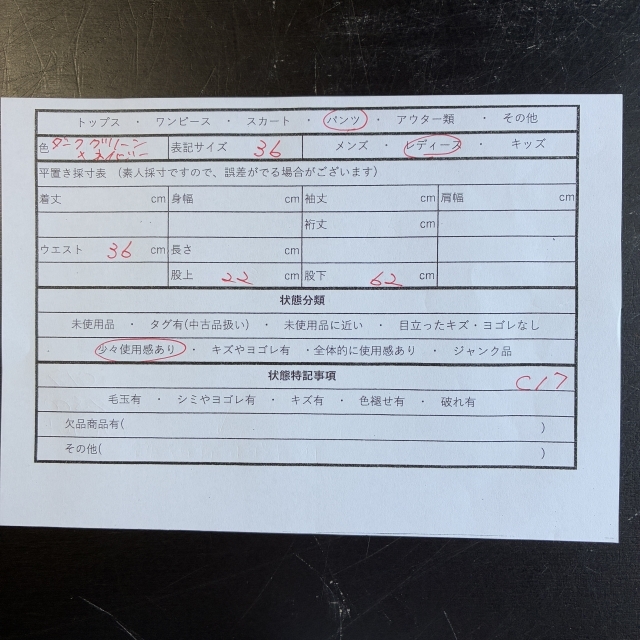 トップス ・ ワンピース ・ スカート ・ パンツ ・ アウター類 ・ その他
色 ダークグリーン×ネイビー 表記サイズ 36 メンズ ・ レディース ・ キッズ
平置き採寸表 (素人採寸ですので、誤差がでる場合がございます)
着丈 cm 身幅 cm 袖丈 cm 肩幅 cm
裄丈 cm
ウエスト 36 cm 長さ cm
股上 22 cm 股下 62 cm
状態分類
未使用品 ・ タグ有(中古品扱い) ・ 未使用品に近い ・ 目立ったキズ・ヨゴレなし
少々使用感あり ・ キズやヨゴレ有 ・全体的に使用感あり ・ ジャンク品
状態特記事項
C17
毛玉有 ・ シミやヨゴレ有 ・ キズ有 ・ 色褪せ有 ・ 破れ有
欠品商品有( )
その他( )